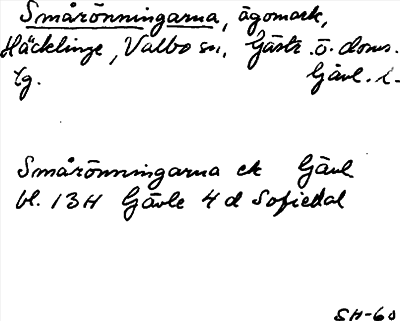 Smårönningarna, ägomark,
Häcklinge, Valbo sn, Gästr. ö. doms.
tg. Gävl. l.
Smårönningarna ek Gävl
bl. 13H Gävle 4d Sofiedal
SH-60